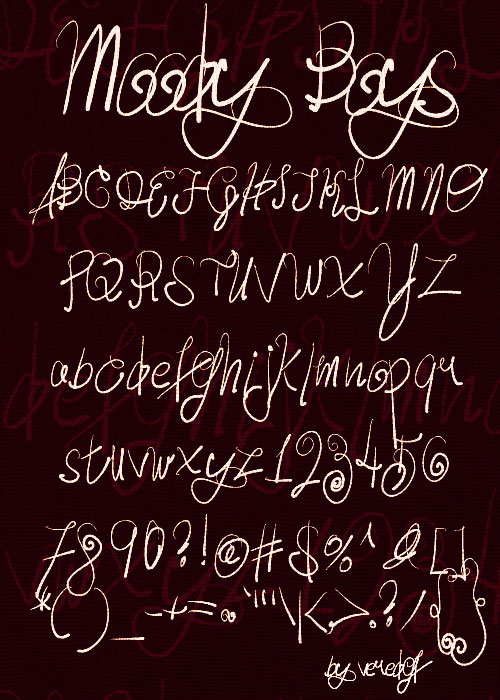 Mooky Boys
ABCDEFGHIJKLMNO
PQRSTUVWXYZ
abcdefghijklmnopqr
stuvwxyz123456
7890?!@#$%^&[]
*()_-+=:;"'\|<>,.?/{}
by veredgf